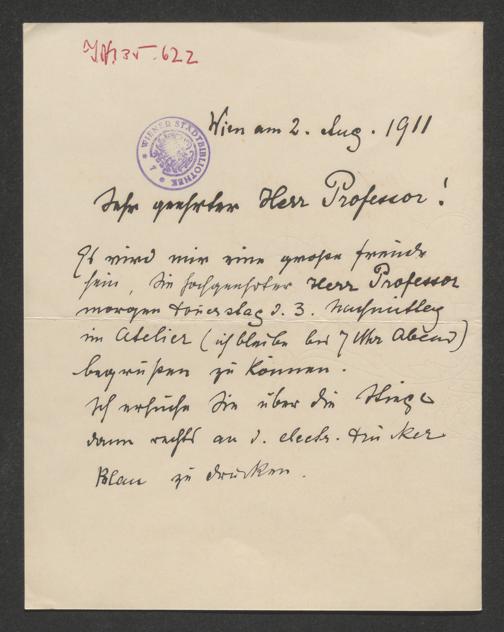 J.N. 35.622
WIENER STADTBIBLIOTHEK
Wien am 2. Aug. 1911
Sehr geehrter Herr Professor!
Es wird mir eine große freude
sein, Sie hochgeehrter Herr Professor
morgen Donerstag d. 3. Nachmittag
im Atelier (ich bleibe bis 7 Uhr Abend)
begrüßen zu können.
Ich ersuche Sie über die Stiege
dann rechts an d. electr. Drücker
Blau zu drücken.